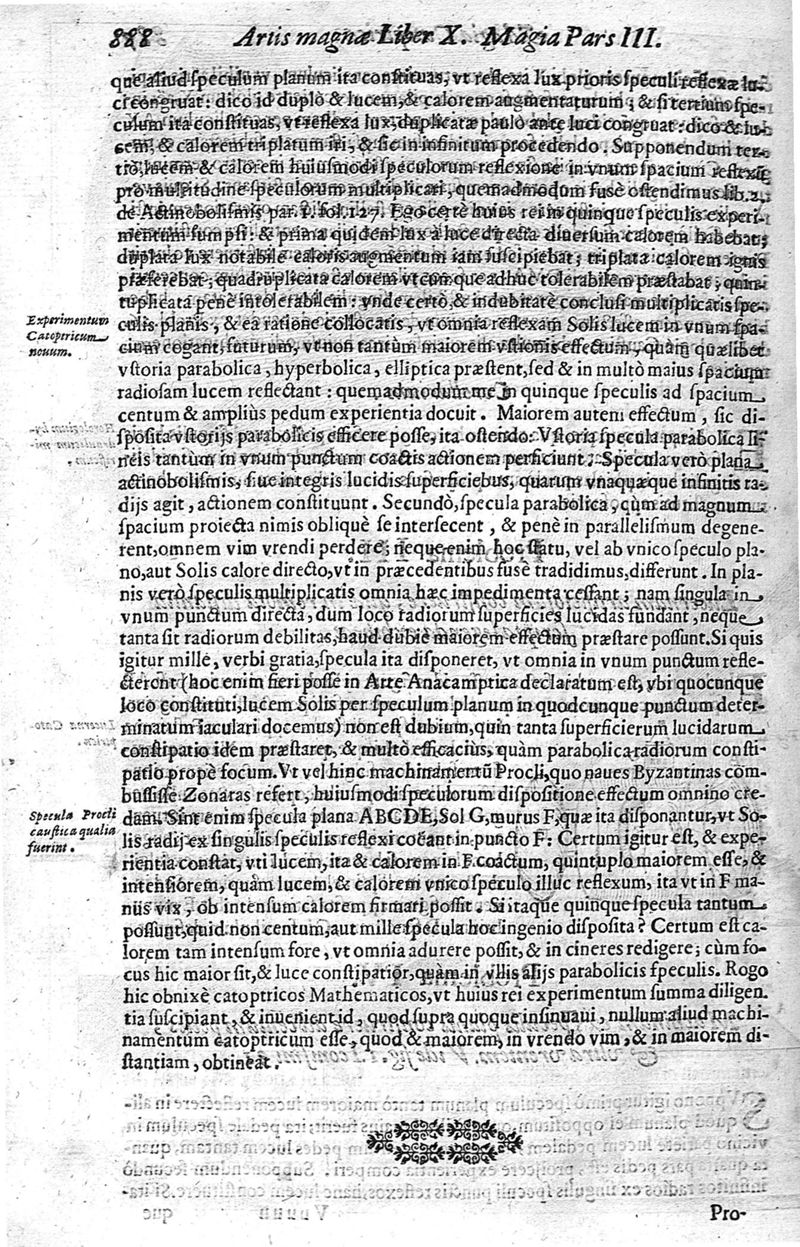 888 Artis magnæ Liber X. Magia Pars III.
que aliud speculum planum ita constituas, vt reflexa lux prioris speculi reflexæ lu-
ci congruat: dico id duplò & lucem, & calorem augmentaturum; & si tertium spe-
culum ita constituas, vt reflexa lux, duplicatæ paulò ante luci congruat: dico & lu-
cem, & calorem triplatum iri, & sic in infinitum procedendo. Supponendum ter-
tiò, lucem & calorem huiusmodi speculorum reflexione in vnum spacium reflexū
pro multitudine speculorum multiplicari, quemadmodum fusè ostendimus lib. 2.
de Actinobolismis par. 1. fol. 127. Ego certè huius rei in quinque speculis experi-
mentum sumpsi: & prima quidem lux à luce directa diuersum calorem habebat;
duplata lux notabile caloris augmentum iam suscipiebat; triplata calorem ignis
præferebat; quadruplicata calorem vtcumque adhuc tolerabilem præstabat; quin-
tuplicata penè intolerabilem: vnde certò, & indubitatè conclusi multiplicatis spe-
Experimentum
Catoptricum
nouum.
culis planis, & ea ratione collocatis, vt omnia reflexam Solis lucem in vnum spa-
cium cogant, futurum, vt non tantùm maiorem vstionis effectum, quàm quælibet
vstoria parabolica, hyperbolica, elliptica præstent, sed & in multò maius spacium
radiosam lucem reflectant: quemadmodum me in quinque speculis ad spacium
centum & ampliùs pedum experientia docuit. Maiorem autem effectum, sic di-
sposita vstorijs parabolicis efficere posse, ita ostendo: Vstoria specula parabolica li-
neis tantùm in vnum punctum coactis actionem perficiunt; Specula verò plana
actinobolismis, siue integris lucidis superficiebus, quarum vnaquæque infinitis ra-
dijs agit, actionem constituunt. Secundò, specula parabolica, cùm ad magnum
spacium proiecta nimis obliquè se intersecent, & penè in parallelismum degene-
rent, omnem vim vrendi perdere; neque enim hoc statu, vel ab vnico speculo pla-
no, aut Solis calore directo, vt in præcedentibus fusè tradidimus, differunt. In pla-
nis verò speculis multiplicatis omnia hæc impedimenta cessant; nam singula in
vnum punctum directa, dum loco radiorum superficies lucidas fundant, neque
tanta sit radiorum debilitas, haud dubiè maiorem effectum præstare possunt. Si quis
igitur mille, verbi gratia, specula ita disponeret, vt omnia in vnum punctum refle-
cterent (hoc enim fieri posse in Arte Anacamptica declaratum est, vbi quocunque
loco constituti, lucem Solis per speculum planum in quodcunque punctum deter-
minatum iaculari docemus) non est dubium, quin tanta superficierum lucidarum
constipatio idem præstaret, & multò efficacius, quàm parabolica radiorum consti-
patio propè focum. Vt vel hinc machinamentū Procli, quo naues Byzantinas com-
bussisse Zonaras refert, huiusmodi speculorum dispositione effectum omnino cre-
Specula Procli
caustica qualia
fuerint.
dam. Sint enim specula plana ABCDE, Sol G, murus F, quæ ita disponantur, vt So-
lis radij ex singulis speculis reflexi coëant in puncto F: Certum igitur est, & expe-
rientia constat, vti lucem, ita & calorem in F coactum, quintuplo maiorem esse, &
intensiorem, quàm lucem, & calorem vnico speculo illuc reflexum, ita vt in F ma-
nus vix, ob intensum calorem firmari possit. Si itaque quinque specula tantum
possunt, quid non centum, aut mille specula hoc ingenio disposita? Certum est ca-
lorem tam intensum fore, vt omnia adurere possit, & in cineres redigere; cùm fo-
cus hic maior sit, & luce constipatior, quàm in vllis alijs parabolicis speculis. Rogo
hic obnixè catoptricos Mathematicos, vt huius rei experimentum summa diligen-
tia suscipiant, & inuenient id, quod supra quoque insinuaui, nullum aliud machi-
namentum catoptricum esse, quod & maiorem, in vrendo vim, & in maiorem di-
stantiam, obtineat.
Pro-